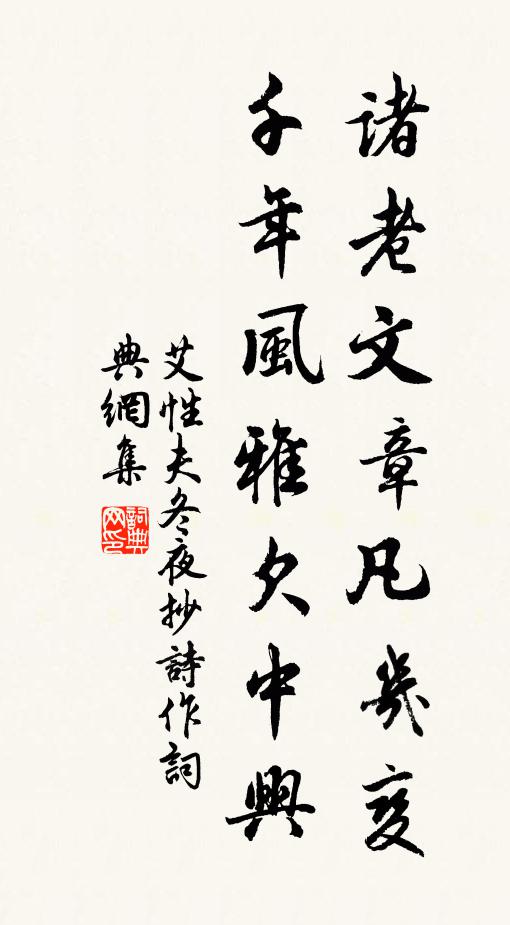 諸老文章凡幾變
千年風雅欠中興
艾性夫冬夜抄詩作詞
典網集
詞典网印